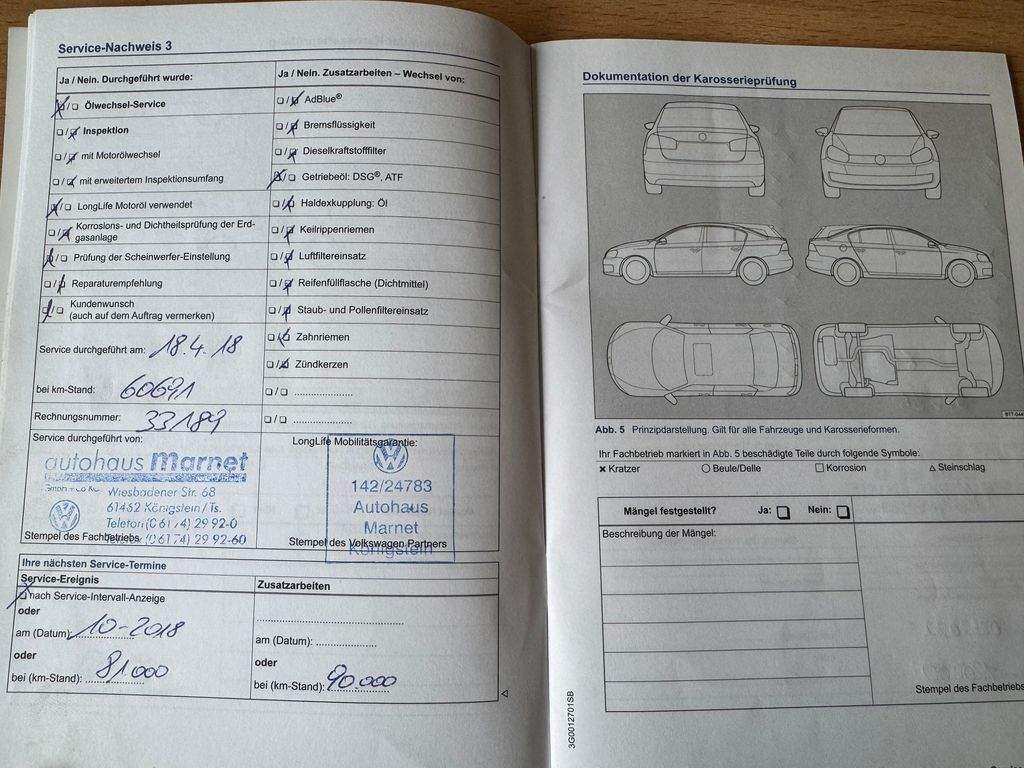 Service-Nachweis 3
Ja / Nein. Durchgeführt wurde:
Ölwechsel-Service
Inspektion
mit Motorölwechsel
mit erweitertem Inspektionsumfang
LongLife Motoröl verwendet
Korrosions- und Dichtheitsprüfung der Erd-
gasanlage
Prüfung der Scheinwerfer-Einstellung
Reparaturempfehlung
Kundenwunsch
(auch auf dem Auftrag vermerken)
Service durchgeführt am: 18.4.18
bei km-Stand: 60691
Rechnungsnummer: 33189
Ja / Nein. Zusatzarbeiten – Wechsel von:
AdBlue®
Bremsflüssigkeit
Dieselkraftstofffilter
Getriebeöl: DSG®, ATF
Haldexkupplung: Öl
Keilrippenriemen
Luftfiltereinsatz
Reifenfüllflasche (Dichtmittel)
Staub- und Pollenfiltereinsatz
Zahnriemen
Zündkerzen
Service durchgeführt von:
autohaus marnet
GmbH + Co KG
Wiesbadener Str. 68
61462 Königstein / Ts.
Telefon (0 61 74) 29 92-0
Telefax (0 61 74) 29 92-60
Stempel des Fachbetriebs
LongLife Mobilitätsgarantie:
142/24783
Autohaus
Marnet
Königstein
Stempel des Volkswagen Partners
Ihre nächsten Service-Termine
Service-Ereignis
nach Service-Intervall-Anzeige
oder
am (Datum): 10-2018
oder
bei (km-Stand): 81.000
Zusatzarbeiten
am (Datum):
oder
bei (km-Stand): 90.000
Dokumentation der Karosserieprüfung
Abb. 5 Prinzipdarstellung. Gilt für alle Fahrzeuge und Karosserieformen.
Ihr Fachbetrieb markiert in Abb. 5 beschädigte Teile durch folgende Symbole:
× Kratzer ○ Beule/Delle □ Korrosion △ Steinschlag
Mängel festgestellt? Ja: Nein:
Beschreibung der Mängel:
Stempel des Fachbetriebs
3G0012701SB